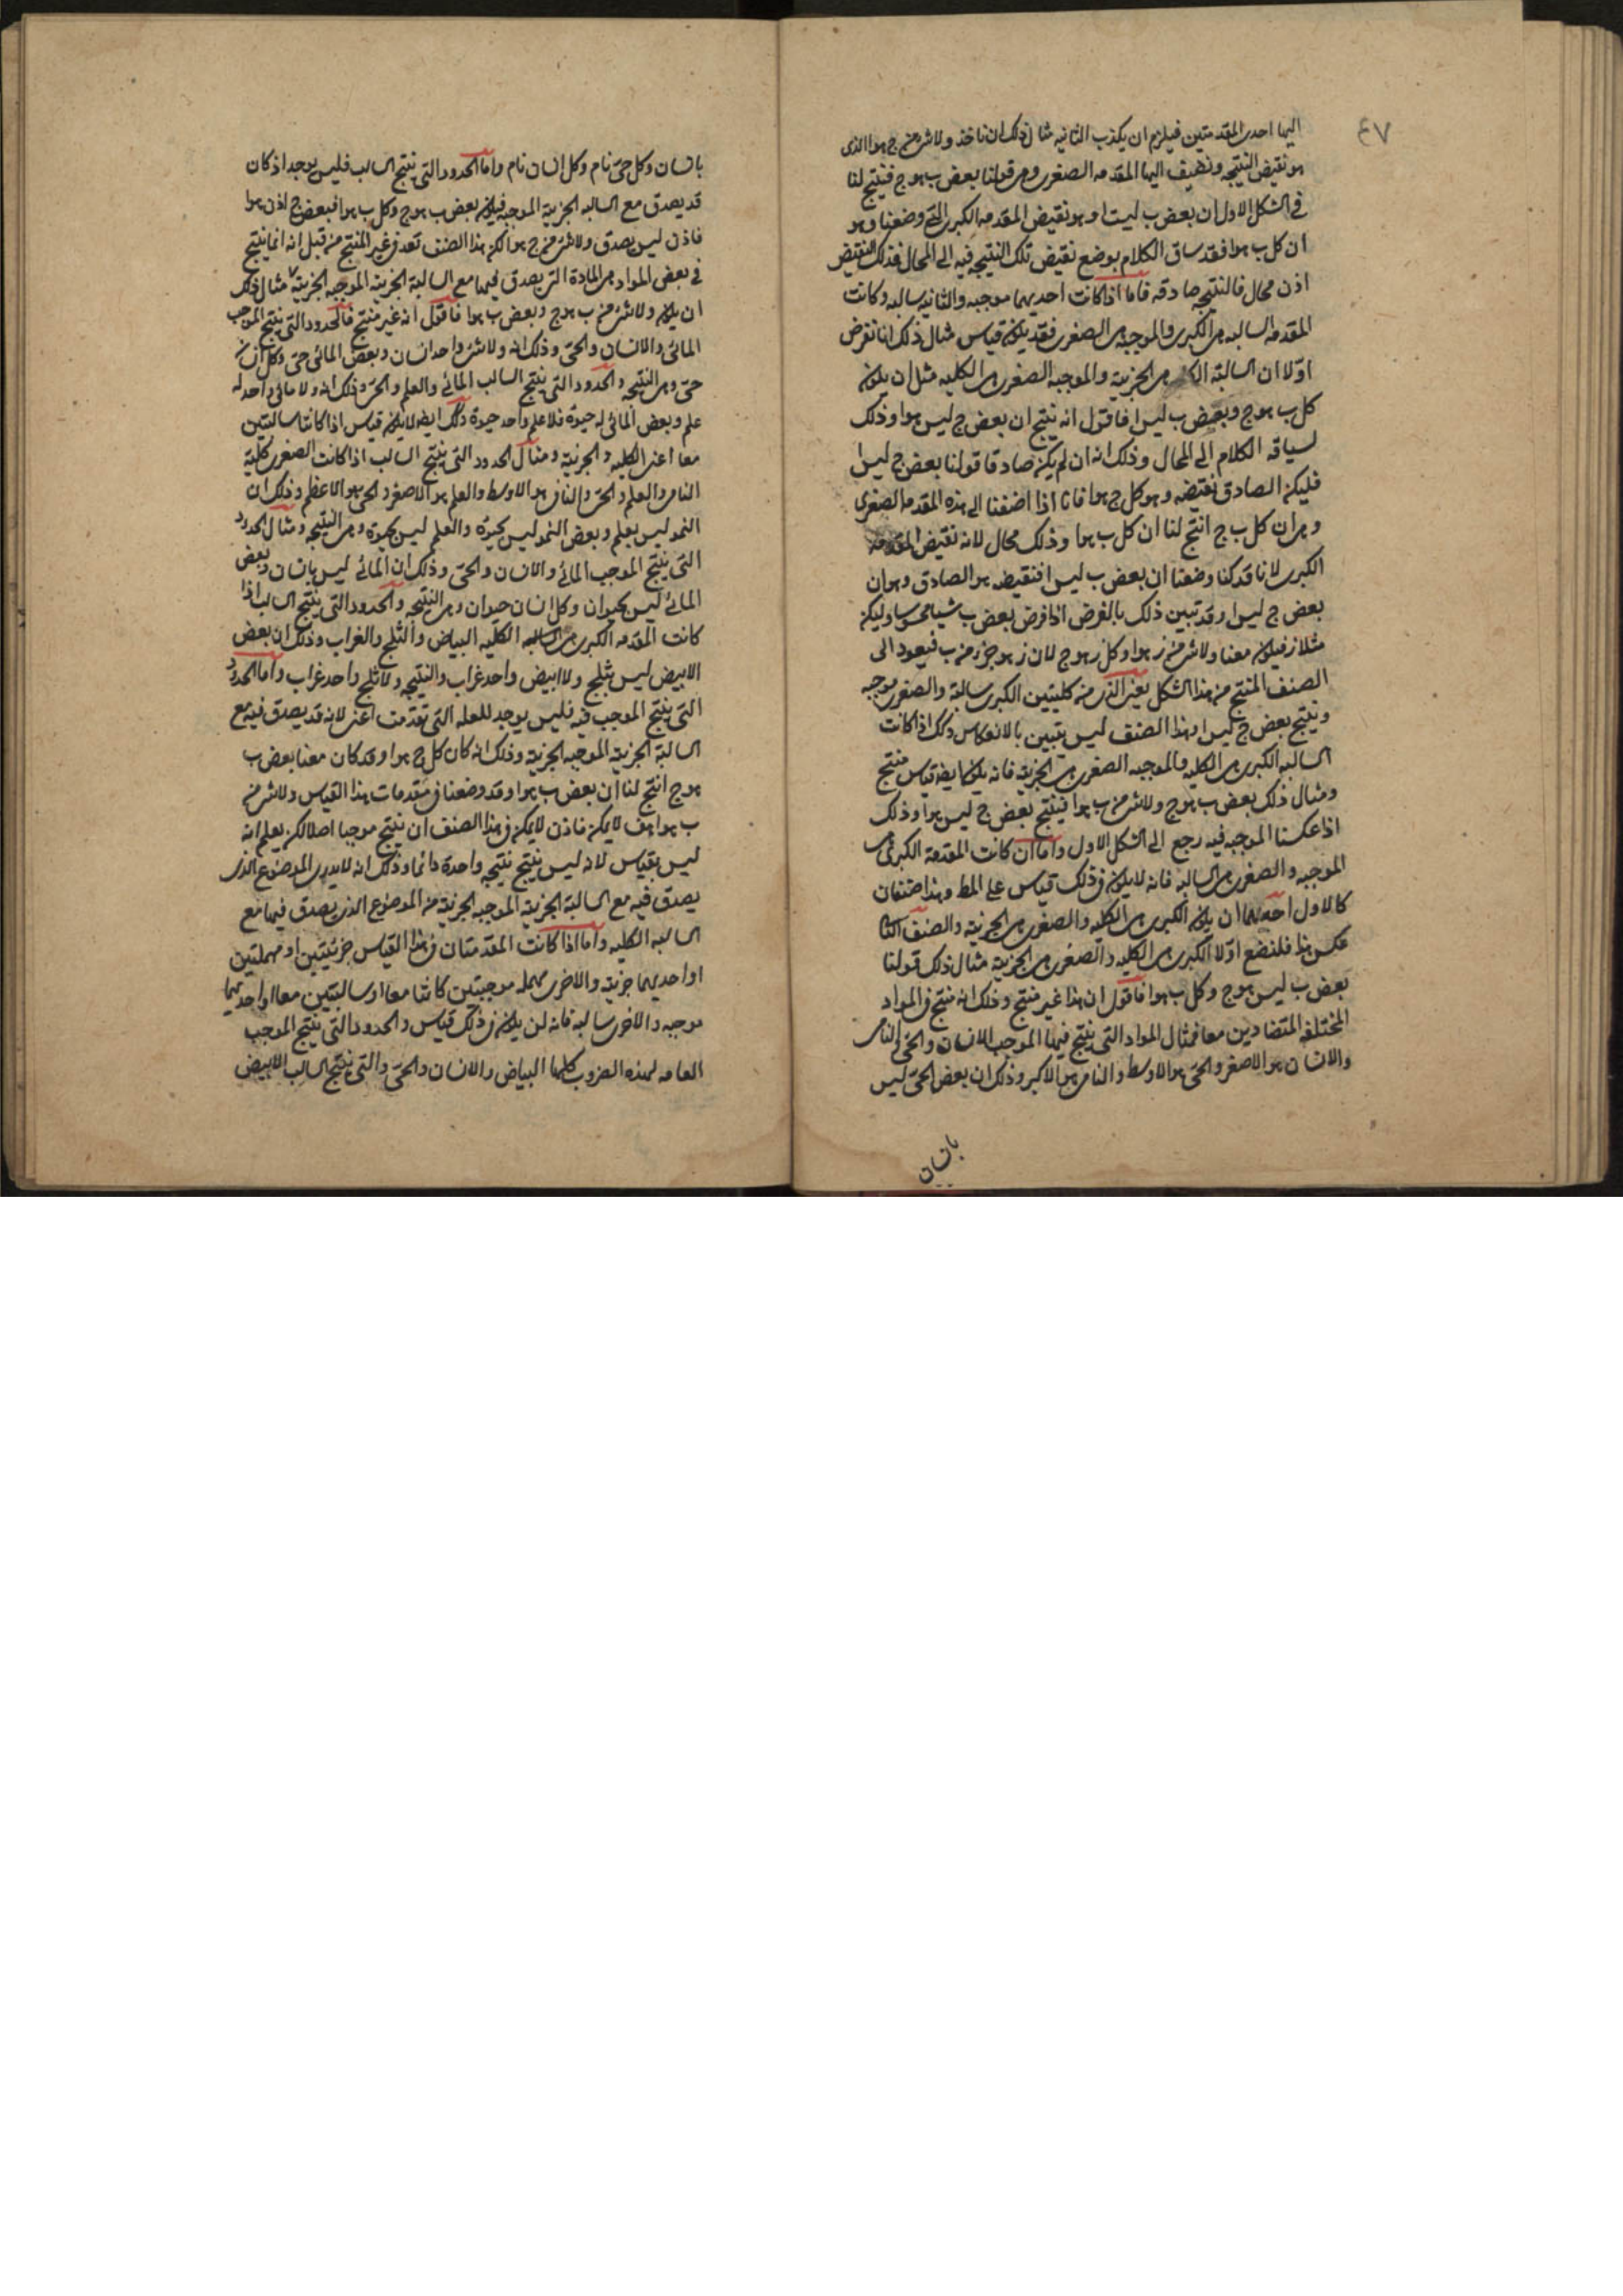 ٤٧
اليها احدى المقدمتين فيلزم ان يكذب الثانيه مثال ذلك ان ناخذ ولا شى من ج هو ا الذى
هو نقيض النتيجه ونضيف اليها المقدمه الصغرى وهى قولنا بعض ب هو ج فينتج لنا
فى الشكل الاول ان بعض ب ليست ا وهو نقيض المقدمه الكبرى التى وضعنا وهو
ان كل ب هو ا فقد ساق الكلام بوضع نقيض تلك النتيجه فيه الى المحال فذلك النقيض
اذن محال فالنتيجه صادقه فاما اذا كانت احديهما موجبه والثانيه سالبه وكانت
المقدمه السالبه هى الكبرى والموجبه هى الصغرى فقد يكون قياس مثال ذلك انا نفرض
اولا ان السالبة هى الجزية والموجبة الصغرى هى الكليه مثل ان يكون
كل ب هو ج وبعض ب ليس ا فاقول انه ينتج ان بعض ج ليس هو ا وذلك
لسياقه الكلام الى المحال وذلك انه ان لم يكن صادقا قولنا بعض ج ليس ا
فليكن الصادق نقيضه وهو كل ج هو ا فانا اذا اضفنا الى هذه المقدمه الصغرى
وهى ان كل ب ج انتج لنا ان كل ب هو ا وذلك محال لانه نقيض المقدمه
الكبرى لانا قد كنا وضعنا ان بعض ب ليس ا فنقيضه هو الصادق وهو ان
بعض ج ليس ا وقد تبين ذلك بالفرض اذا فرض بعض ب شيا محسوسا وليكن
مثلا ز فيكون معنا ولا شى من ز هو ا وكل ز هو ج لان ز هو جزء من ب فيعود الى
الصنف المنتج من هذا الشكل يعنى الذى من كليتين الكبرى سالبة والصغرى موجبه
وينتج بعض ج ليس ا وهذا الصنف ليس يتبين بالانعكاس وكك اذا كانت
السالبه الكبرى هى الكليه والموجبه الصغرى هى الجزية فانه يكون ايضا قياس منتج
ومثال ذلك بعض ب هو ج ولا شى من ب هو ا فينتج بعض ج ليس هو ا وذلك
اذا عكسنا الموجبه فيه رجع الى الشكل الاول واما ان كانت المقدمة الكبرى هى
الموجبه والصغرى هى السالبه فانه لا يكون فى ذلك قياس على المط وهذا صنفان
كالاول احدهما ان يكون الكبرى هى الكليه والصغرى هى الجزئية والصنف الثا
عكس هذا فلنضع اولا الكبرى هى الكليه والصغرى هى الجزية مثال ذلك قولنا
بعض ب ليس هو ج وكل ب هو ا فاقول ان هذا غير منتج وذلك انه منتج فى المواد
المختلفه المتضادين معا فمثال المواد التى ينتج فيها الموجب الانسان والحى والنامى
والانسان هو الاصغر والحى هو الاوسط والنامى هو الاكبر وذلك ان بعض الحى ليس
بانسان
بانسان وكل حى نام وكل انسان نام واما الحدود التى ينتج السالب فليس يوجد اذ كان
قد يصدق مع السالبه الجزية الموجبه فيكون بعض ب هو ج وكل ب هو ا فبعض ج اذن هو ا
فاذن ليس يصدق ولا شى من ج هو ا لكن هذا الصنف تعد فى غير المنتج من قبل انه انما ينتج
فى بعض المواد هى المادة التى يصدق فيها مع السالبة الجزية الموجبه الجزية مثال ذلك
ان يكون ولا شى من ب هو ج وبعض ب هو ا فاقول انه غير منتج فالحدود التى ينتج الموجب
المائى والانسان والحى وذلك انه ولا شى واحد انسان وبعض المائى حى وكل انسان
حى وهى النتيجه والحدود التى ينتج السالب المائى والعلم والحى وذلك انه ولا مائى واحد له
علم وبعض المائى له حيوة فلا علم واحد حيوة وكك ايضا لا يكون قياس اذا كانتا سالبتين
معا اعنى الكليه والجزئية ومثال الحدود التى ينتج السالب اذا كانت الصغرى كلية
النامى والعلم والحى والنامى هو الاوسط والعلم هو الاصغر والحى هو الاعظم وذلك ان
النمو ليس بعلم وبعض النمو ليس بحيوة والعلم ليس بحيوة وهى النتيجه ومثال الحدود
التى ينتج الموجب المائى والانسان والحى وذلك ان المائى ليس بانسان وبعض
المائى ليس بحيوان وكل انسان حيوان وهى النتيجه والحدود التى ينتج السالب اذا
كانت المقدمه الكبرى هى السالبه الكليه البياض والثلج والغراب وذلك ان بعض
الابيض ليس بثلج ولا ابيض واحد غراب والنتيجه ولا ثلج واحد غراب واما الحدود
التى ينتج الموجب فيه فليس يوجد للعله التى تقدمت اعنى لانه قد يصدق فيه مع
السالبة الجزية الموجبه الجزية وذلك انه كان كل ج هو ا وقد كان معنا بعض ب
هو ج انتج لنا ان بعض ب هو ا وقد وضعنا فى مقدمات هذا القياس ولا شى من
ب هو ا هف لا يمكن فاذن لا يمكن فى هذا الصنف ان ينتج موجبا اصلا لكن يعلم انه
ليس بقياس لانه ليس ينتج نتيجه واحدة دائما وذلك انه لا يدرى الموضوع الذى
يصدق فيه مع السالبة الجزية الموجبه الجزية من الموضوع الذى يصدق فيها مع
السالبه الكليه واما اذا كانت المقدمتان فى هذا القياس جزئيتين او مهملتين
او احديهما جزية والاخرى مهمله موجبتين كانتا معا او سالبتين معا او احديهما
موجبه والاخرى سالبه فانه لن يكون فى ذلك قياس والحدود التى ينتج الموجب
العامه لهذه الضروب كلها البياض والانسان والحى والتى ينتج السالب الابيض